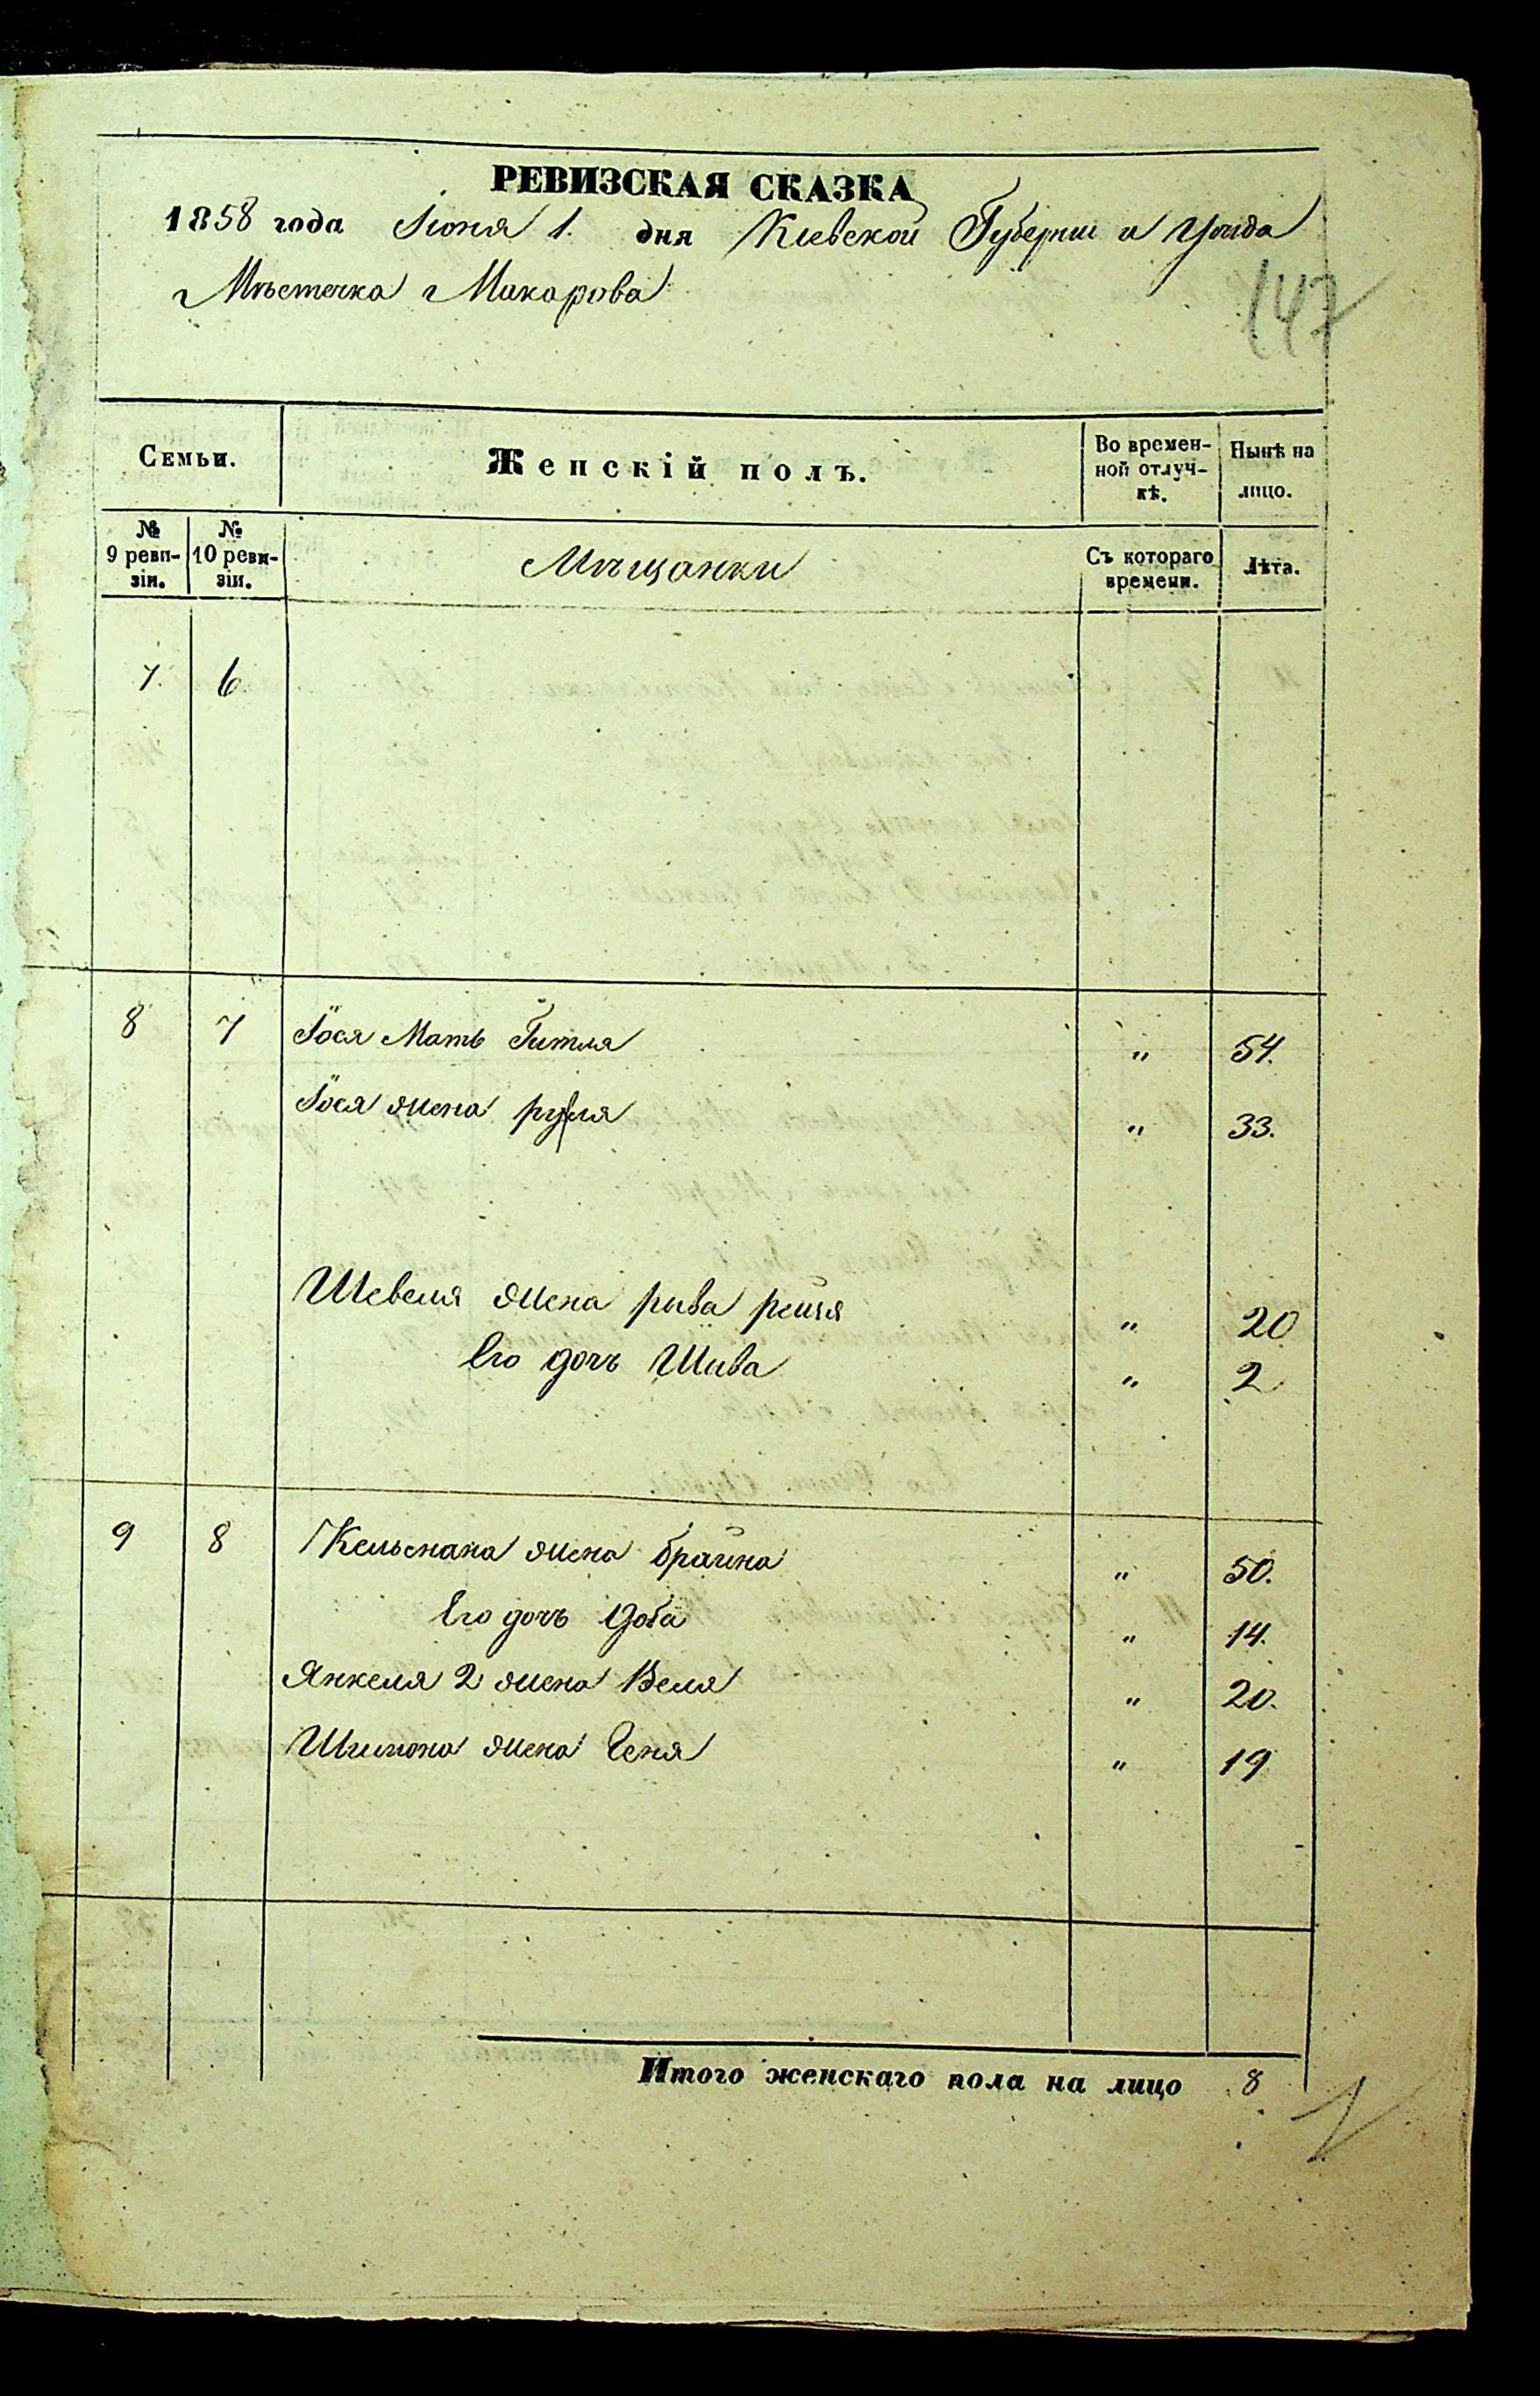 РЕВИЗСКАЯ СКАЗКА
1858 года Іюня 1. дня Кіевской Губерніи и Уѣзда
Мѣстечка Макарова
147
Семьи.
Женскій полъ.
Во времен-
ной отлуч-
кѣ.
Нынѣ на
лицо.
№
9 реви-
зіи.
№
10 реви-
зіи.
Мѣщанки
Съ котораго
времени.
Лѣта.
7. 6.
8 7 Іося Мать Гитля " 54.
Іося жена " 33.
Шевеля жена рива рейзя " 20
Его дочь Шива " 2
9 8 Кельмана жена брайна " 50.
Его дочь Доба " 14.
Янкеля 2 жена Веля " 20.
Шимона жена Геня " 19
Итого женскаго пола на лицо 8